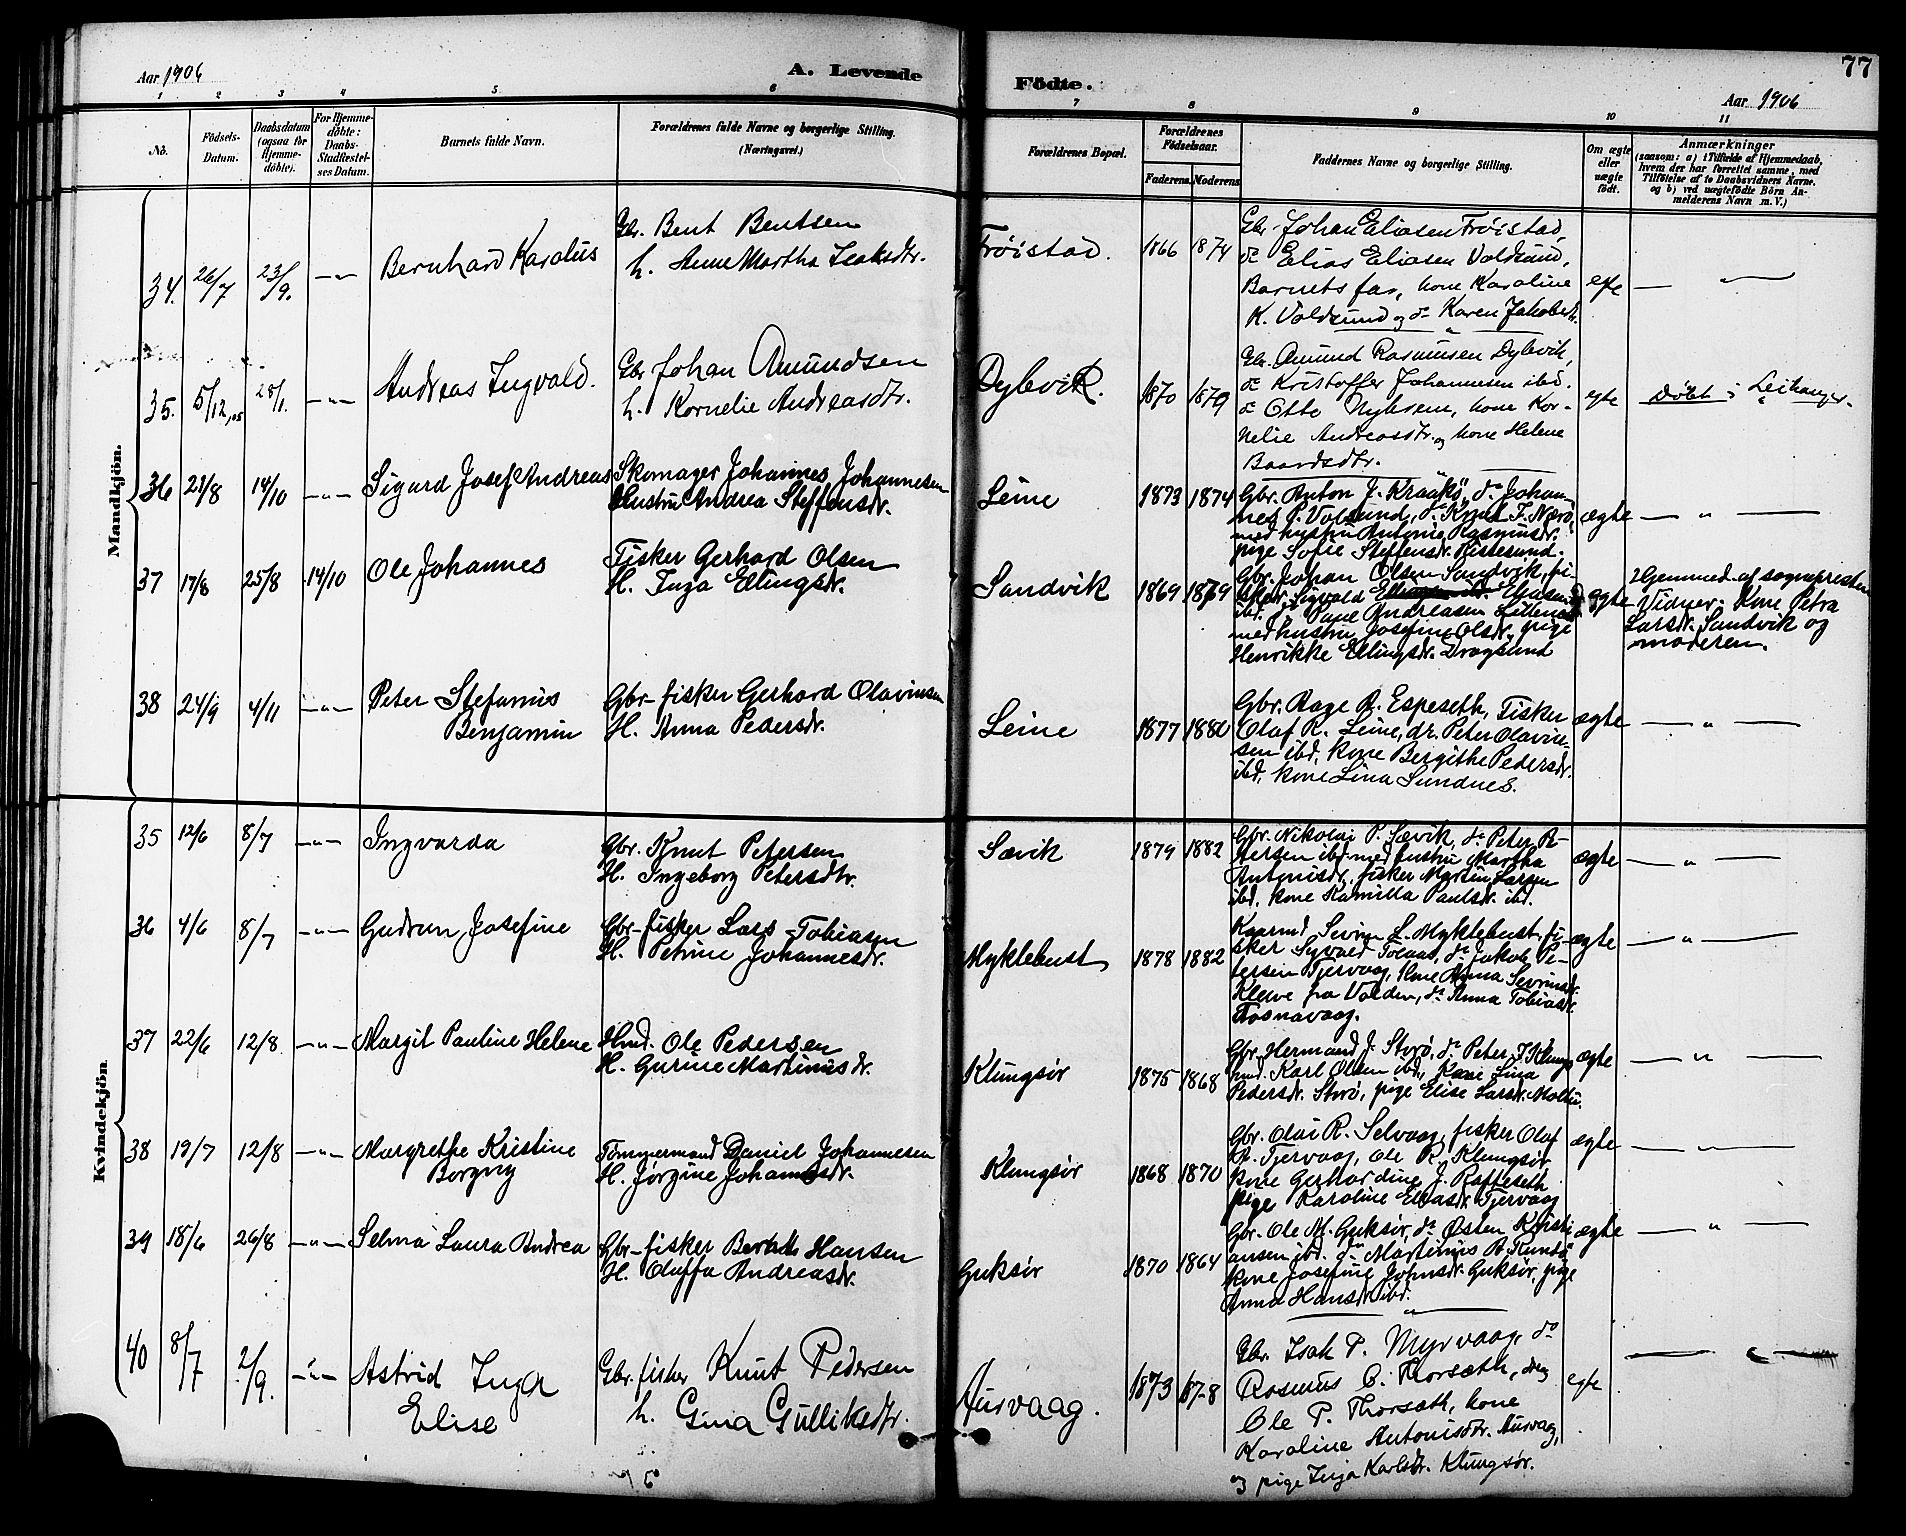 Aar 1906
A. Levende
Födte.
77
Aar 1906
1 2 3 4 5 6 7 8 9 10 11
No.
Födsels-Datum.
Daabsdatum (ogsaa for Hjemme-döbte).
For Hjemme-döbte: Daabs-Stadfæstel-ses Datum.
Barnets fulde Navn.
Forældrenes fulde Navne og borgerlige Stilling. (Næringsvei.)
Forældrenes Bopæl.
Forældrenes Födselsaar.
Faderens. Moderens.
Faddernes Navne og borgerlige Stilling.
Om ægte eller uægte födt.
Anmærkninger
(saasom: a) i Tilfælde af Hjemmedaab, hvem der har forrettet samme, med Tilföielse af to Daabsvidners Navne, og b) ved uægtefödte Börn An-melderens Navn m. V.)
Mandkjön.
34. 26/7 23/9. -"- Bernhard Karolus
Gbr. Bent Bentsen
h. Anne Martha Isaksdtr.
Frøistad. 1866 1874
Gbr. Johan Eliasen Frøistad,
do Elias Eliasen Voldsund,
Barnets far, kone Karoline
K. Voldsund og do Karen Jakobsdtr.
egte — " —
35. 5/12,05 28/1. -"- Andreas Ingvald.
Gbr Johan Amundsen
h. Kornelie Andreasdtr.
Dybvik. 1870 1879
Gbr. Amund Rasmusen Dybvik,
do Kristoffer Johannesen ibd.
do Otto Nyksem, kone Kor-
nelie Andreasdtr. og kone Helene
Baardsdtr.
egte Døbt i Leikanger.
36 21/8 14/10 -"- Sigurd Josef Andreas
Skomager Johannes Johannesen
Hustru Andrea Steffensdr.
Leine 1873 1874
Gbr. Anton J. Kraakø, do Johan-
nes P. Voldsund, do Knut J. Nærø,
med hustru Antonie Rasmusdr.
pige Sofie Steffensdr. Ristesund.
ægte — " —
37 17/8 25/8 14/10 Ole Johannes
Fisker Gerhard Olsen
H. Inga Ellingsdr.
Sandvik 1869 1879
Gbr. Johan Olsen Sandvik, fi-
sker Sigvald Eliasen
ibd. Paul Andreasen
med hustru Josefine Olsdr. pige
Henrikke Ellingsdr. Dragsund
ægte
Hjemmed. af sognepresten
Vidner: Kone Petra
Larsdr. Sandvik og
moderen.
38 24/9 4/11 -"- Peter Stefanus
Benjamin
Gbr-fisker Gerhard Olavinsen
H. Anna Pedersdr.
Leine 1877 1880
Gbr. Aage A. Espeseth, Fisker
Olaf R. Leine, do. Peter Olavin-
sen ibd, kone Bergithe Pedersdr.
ibd, kone Lina Sundnes.
ægte — " —
Kvindekjön
35 12/6 8/7 -"- Ingvarda
Gbr. Knut Petersen
H. Ingeborg Petersdtr.
Sævik 1879 1882
Gbr. Nikolai P. Sævik, do Peter P-
tersen ibd med hustru Martha
Antonisdr. fisker Martin Larsen
ibd, kone Kamilla Paulsdr. ibd.
ægte — " —
36 4/6 8/7 -"- Gudrun Josefine
Gbr-fisker Lars Tobiasen
H. Petrine Johannesdr.
Myklebust 1878 1882
Kaarmd Sevrin L. Myklebust, fi-
sker Syvald Tolaas, do Jakob Pe-
tersen Tjervaag, kone Anna Sevrinsdr.
Kleive fra Volden, do Anna Tobiasdr.
Fosnavaag.
ægte — " —
37 22/6 12/8 -"- Margit Pauline Helene
Hmd. Ole Pedersen
H. Gurine Martinusdr.
Klungsør 1875 1868
Gbr. Hermand J. Storø, do Peter J. Klungs
hmd. Karl Olsen ibd., Kone Lina
Pedersdr. Storø, pige Elise Larsdr. Moltu.
ægte — " —
38 19/7 12/8 -"- Margrethe Kristine
Borgny
Tømmermand Daniel Johannesen
H. Jørgine Johansdr.
Klungsør 1868 1870
Gbr. Olai R. Selvaag, fisker Olaf
A. Tjervaag, Ole R. Klungsør
kone Gerhardine J. Røffeseth
pige Karoline Eliasdr. Tjervaag
ægte — " —
39 18/6 26/8 -"- Selma Laura Andrea
Gbr-fisker Hansen
H. Oluffa Andreasdr.
Gurksør 1870 1864
Gbr. Ole M. Gurksør, do Østen Kristi-
ansen ibd. do Martinus B. Runde
kone Josefine Johnsdr. Gurksør, pige
Anna Hansdr. ibd.
ægte — " —
40 8/7 2/9. -"- Astrid Inga
Elise
Gbr. fisker Knut Pedersen
h. Gina Gulliksdtr.
Aurvaag. 1873 1878
Gbr. Isak P. Myrvaag, do
Rasmus C. Thorsæth, do
Ole P. Thorsæth, kone
Karoline Antonisdtr. Aurvaag,
og pige Inga Karlsdtr. Klungsør.
egte